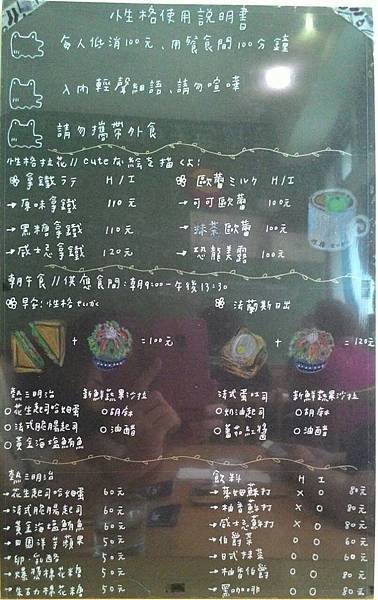 性格使用說明書
每人低消100元、用餐食間100分鐘
入內輕聲細語、請勿喧嘩
請勿攜帶外食
性格拉花// cuteな絵を描くよ!
拿鐵 ラテ H / I
→ 原味拿鐵 110元
→ 黑糖拿鐵 110元
→ 威士忌拿鐵 120元
歐蕾 ミルク H / I
→ 可可歐蕾 100元
→ 抹茶歐蕾 100元
→ 恐龍美露 100元
朝午食//供應食間:朝9:00-午後13:30
早午:性格
+ =100元
法蘭斯日出
+ =120元
熱三明治
○花生起司哈姆蛋
○法式脆腸起司
○黃金海塩鮪魚
新鮮蔬果沙拉
○胡麻
○油醋
法式蛋吐司
○奶油起司
○蕃茄紅醬
新鮮蔬果沙拉
○胡麻
○油醋
熱三明治
→花生起司哈姆蛋 60元
→法式脆腸起司 60元
→黃金海塩鮪魚 60元
→田園洋芋蘋果 50元
50元
→爆漿棉花糖 50元
→生古力棉花糖 50元
飲料 H I
蘇打 X O 80元
→柚香蘇打 X O 80元
→威士忌蘇打 X O 80元
→伯爵茶 O O 60元
→日式抹茶 O O 60元
→柚香伯爵 O O 80元
→黑咖啡 O O 80元